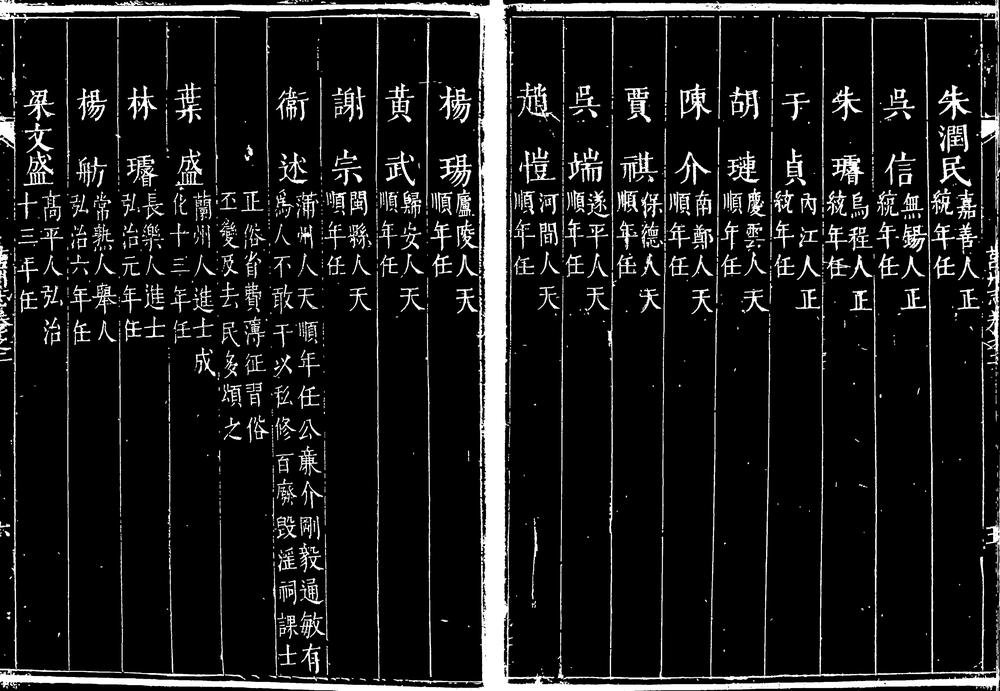 朱潤民嘉善人正統年任
吳信無錫人正統年任
朱璿烏程人正統年任
于貞內江人正統年任
胡璉慶雲人天順年任
陳介南鄭人天順年任
賈祺保德人天順年任
吳端遂平人天順年任
趙愷河間人天順年任
楊瑒廬陵人天順年任
黃武歸安人天順年任
謝宗閩縣人天順年任
衞述蒲州人天順年任公廉介剛毅通敏有為人不敢干以私修百廢毀淫祠課士
正俗省費薄征習俗丕變及去民多頌之
葉盛蘭州人進士成化十三年任
林璿長樂人進士弘治元年任
楊舫常熟人舉人弘治六年任
梁文盛高平人弘治十三年任
六
五